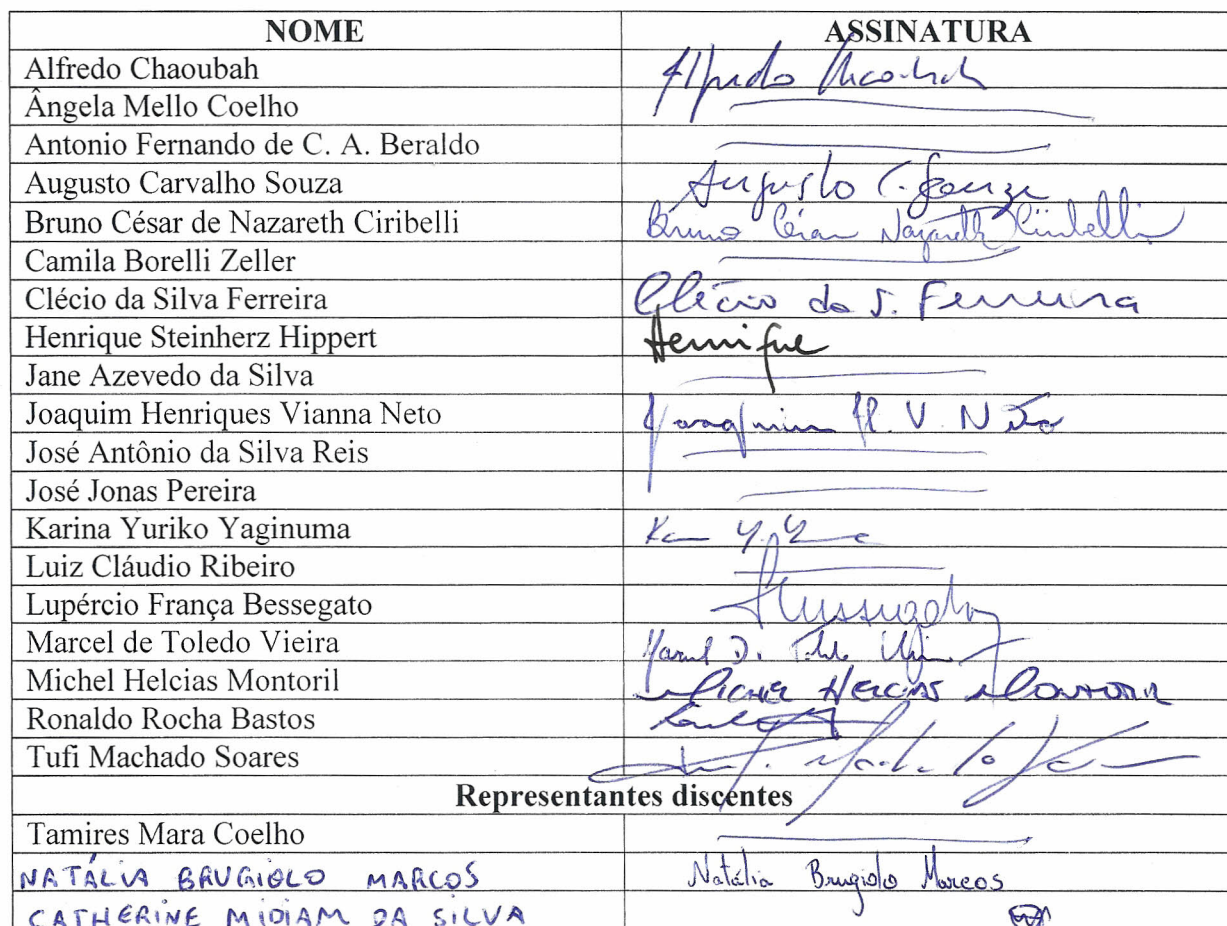 NOME ASSINATURA
Alfredo Chaoubah Alfredo Chaoubah
Ângela Mello Coelho
Antonio Fernando de C. A. Beraldo
Augusto Carvalho Souza Augusto C. Souza
Bruno César de Nazareth Ciribelli Bruno César Nazareth Ciribelli
Camila Borelli Zeller
Clécio da Silva Ferreira Clécio da S. Ferreira
Henrique Steinherz Hippert Henrique
Jane Azevedo da Silva
Joaquim Henriques Vianna Neto Joaquim H. V. Neto
José Antônio da Silva Reis
José Jonas Pereira
Karina Yuriko Yaginuma
Luiz Cláudio Ribeiro
Lupércio França Bessegato
Marcel de Toledo Vieira
Michel Helcias Montoril Michel Helcias Montoril
Ronaldo Rocha Bastos
Tufi Machado Soares
Representantes discentes
Tamires Mara Coelho
NATÁLIA BRUGIOLO MARCOS Natália Brugiolo Marcos
CATHERINE MIDIAM DA SILVA